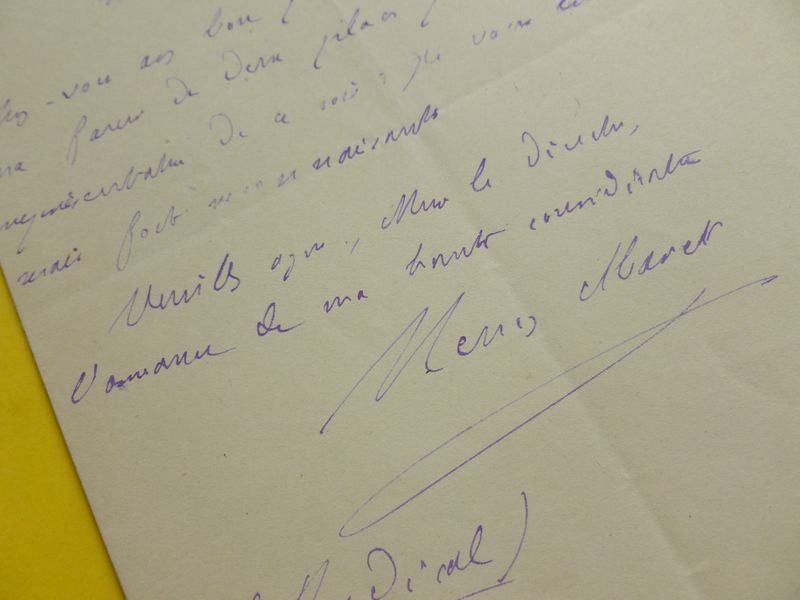 -vous bon
faveur de deux places
représentation de ce soir : je vous en
serais fort reconnaissant
Veuillez agréer, Mons le directeur,
l'assurance de ma haute considération
Henry Maret
Radical)